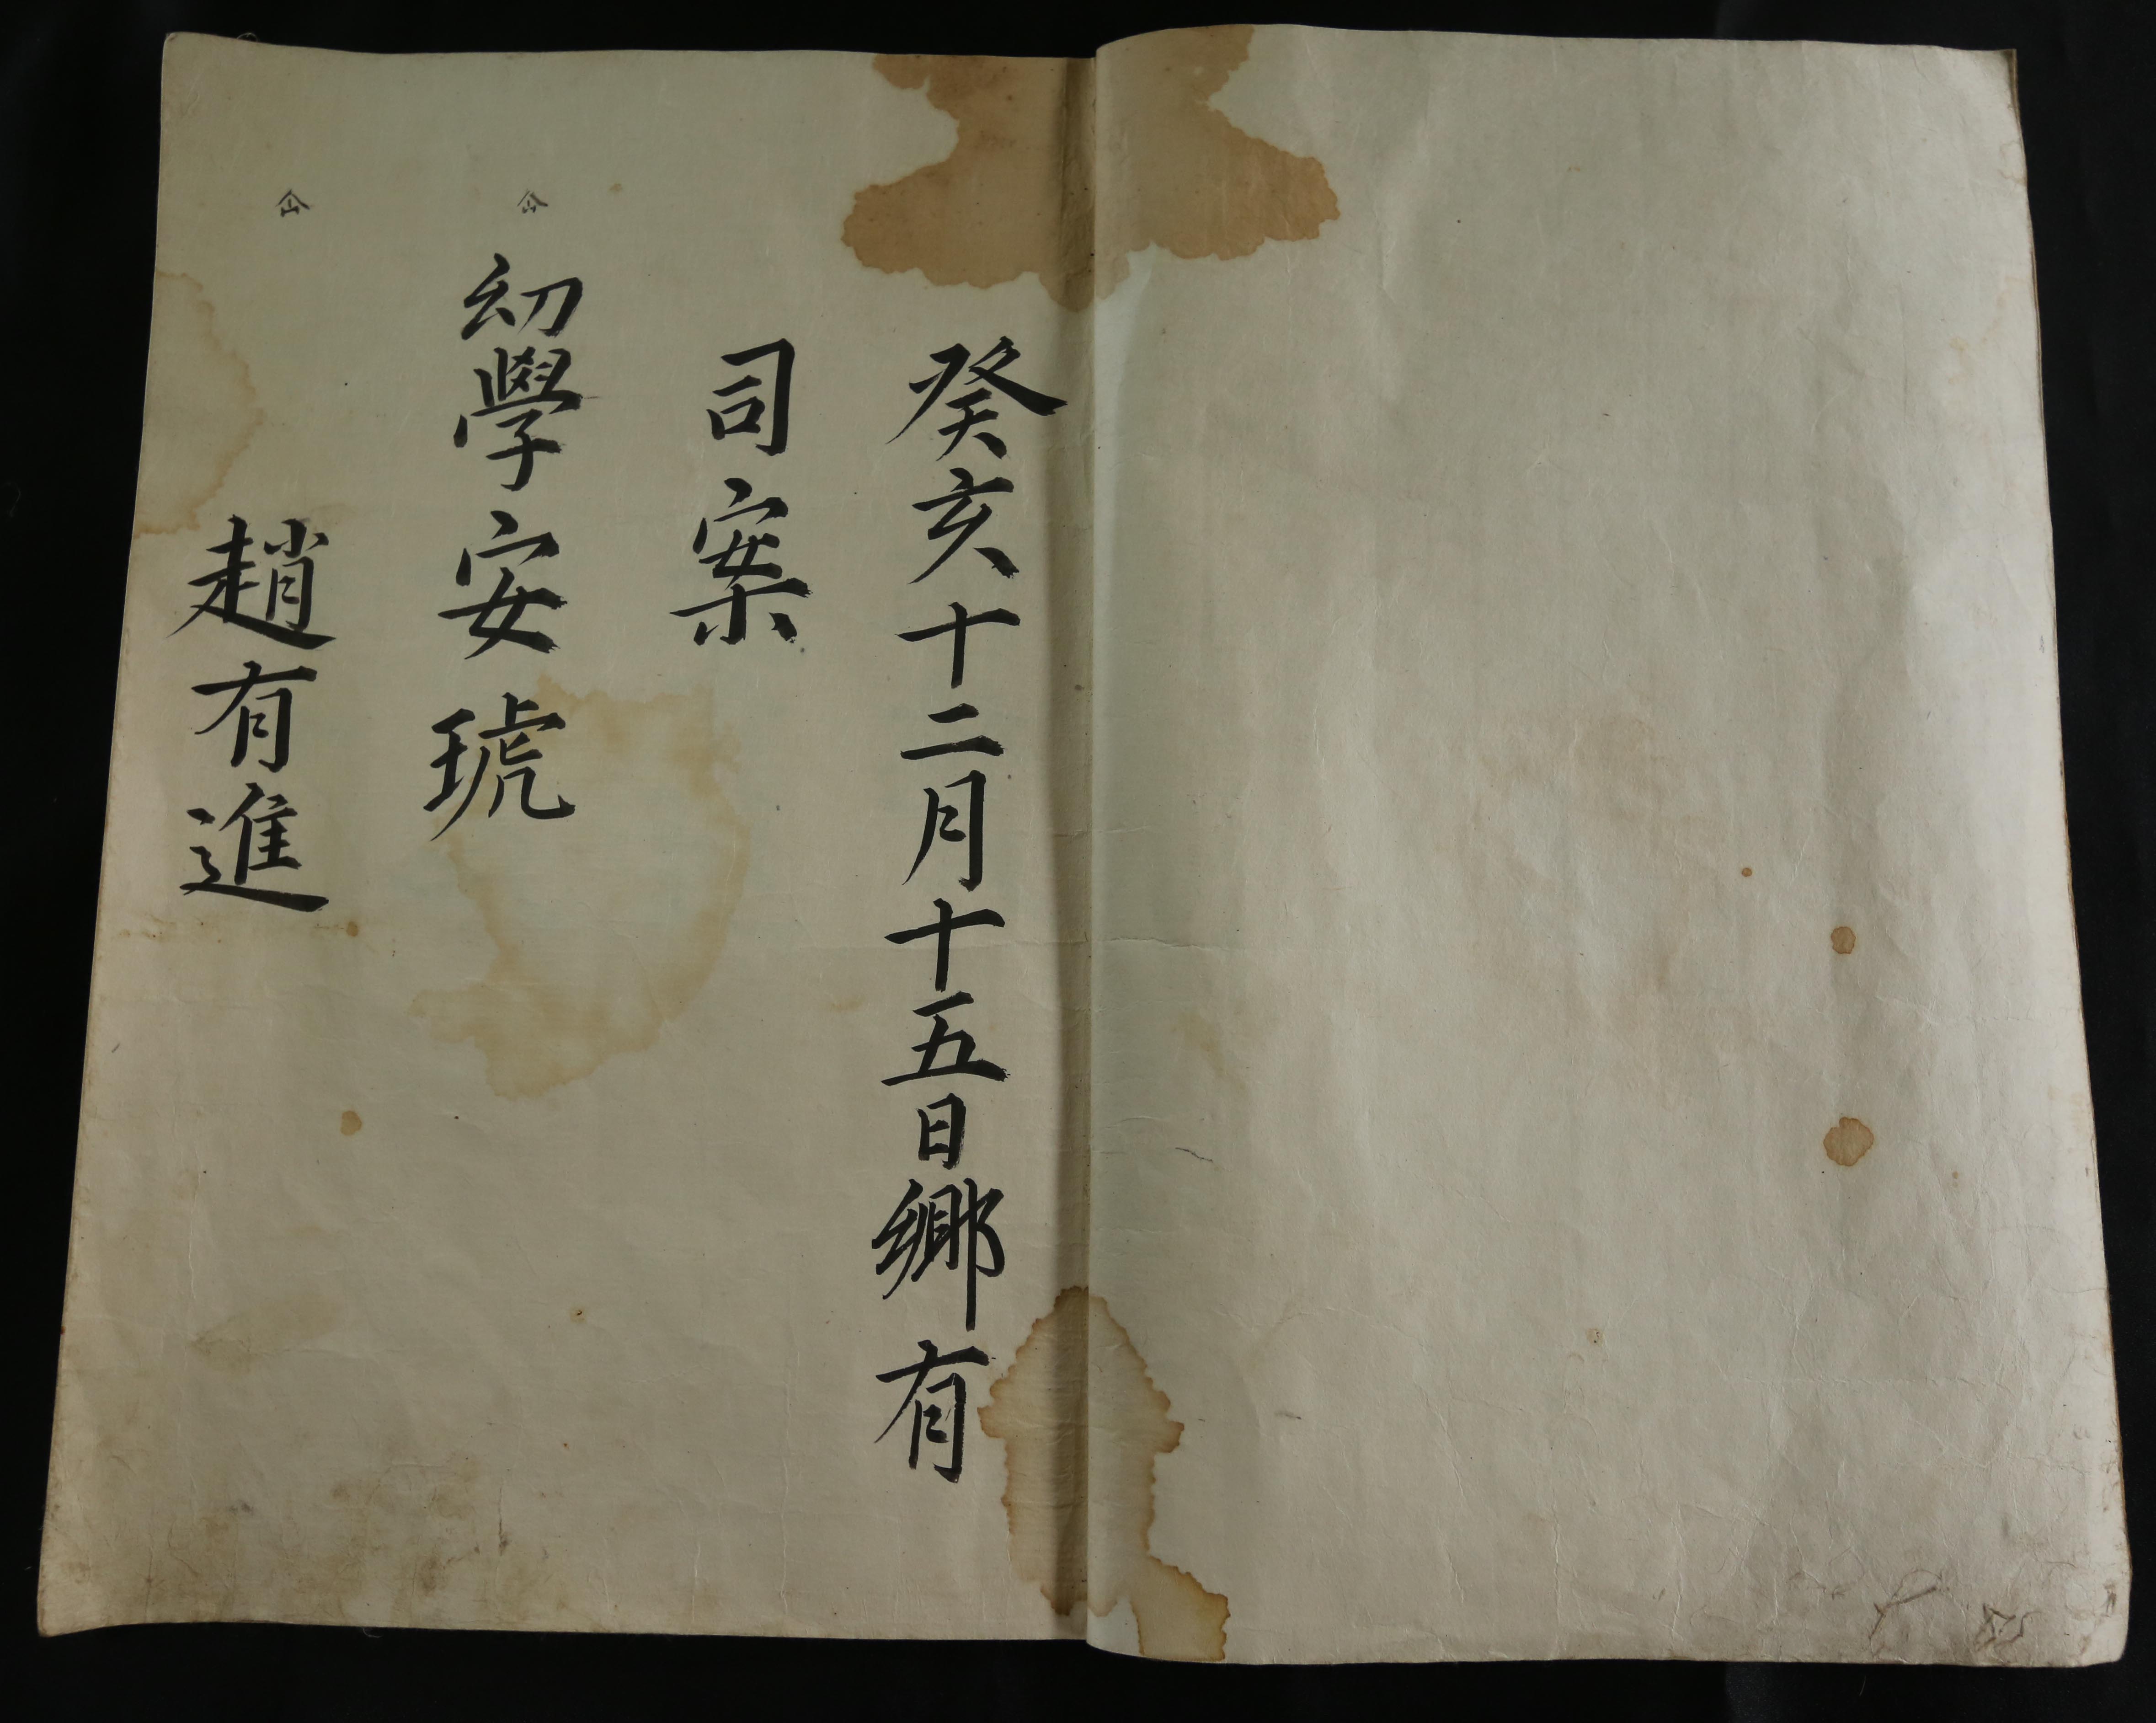 癸亥十二月十五日鄕有
司案
幼學安琥
趙有進